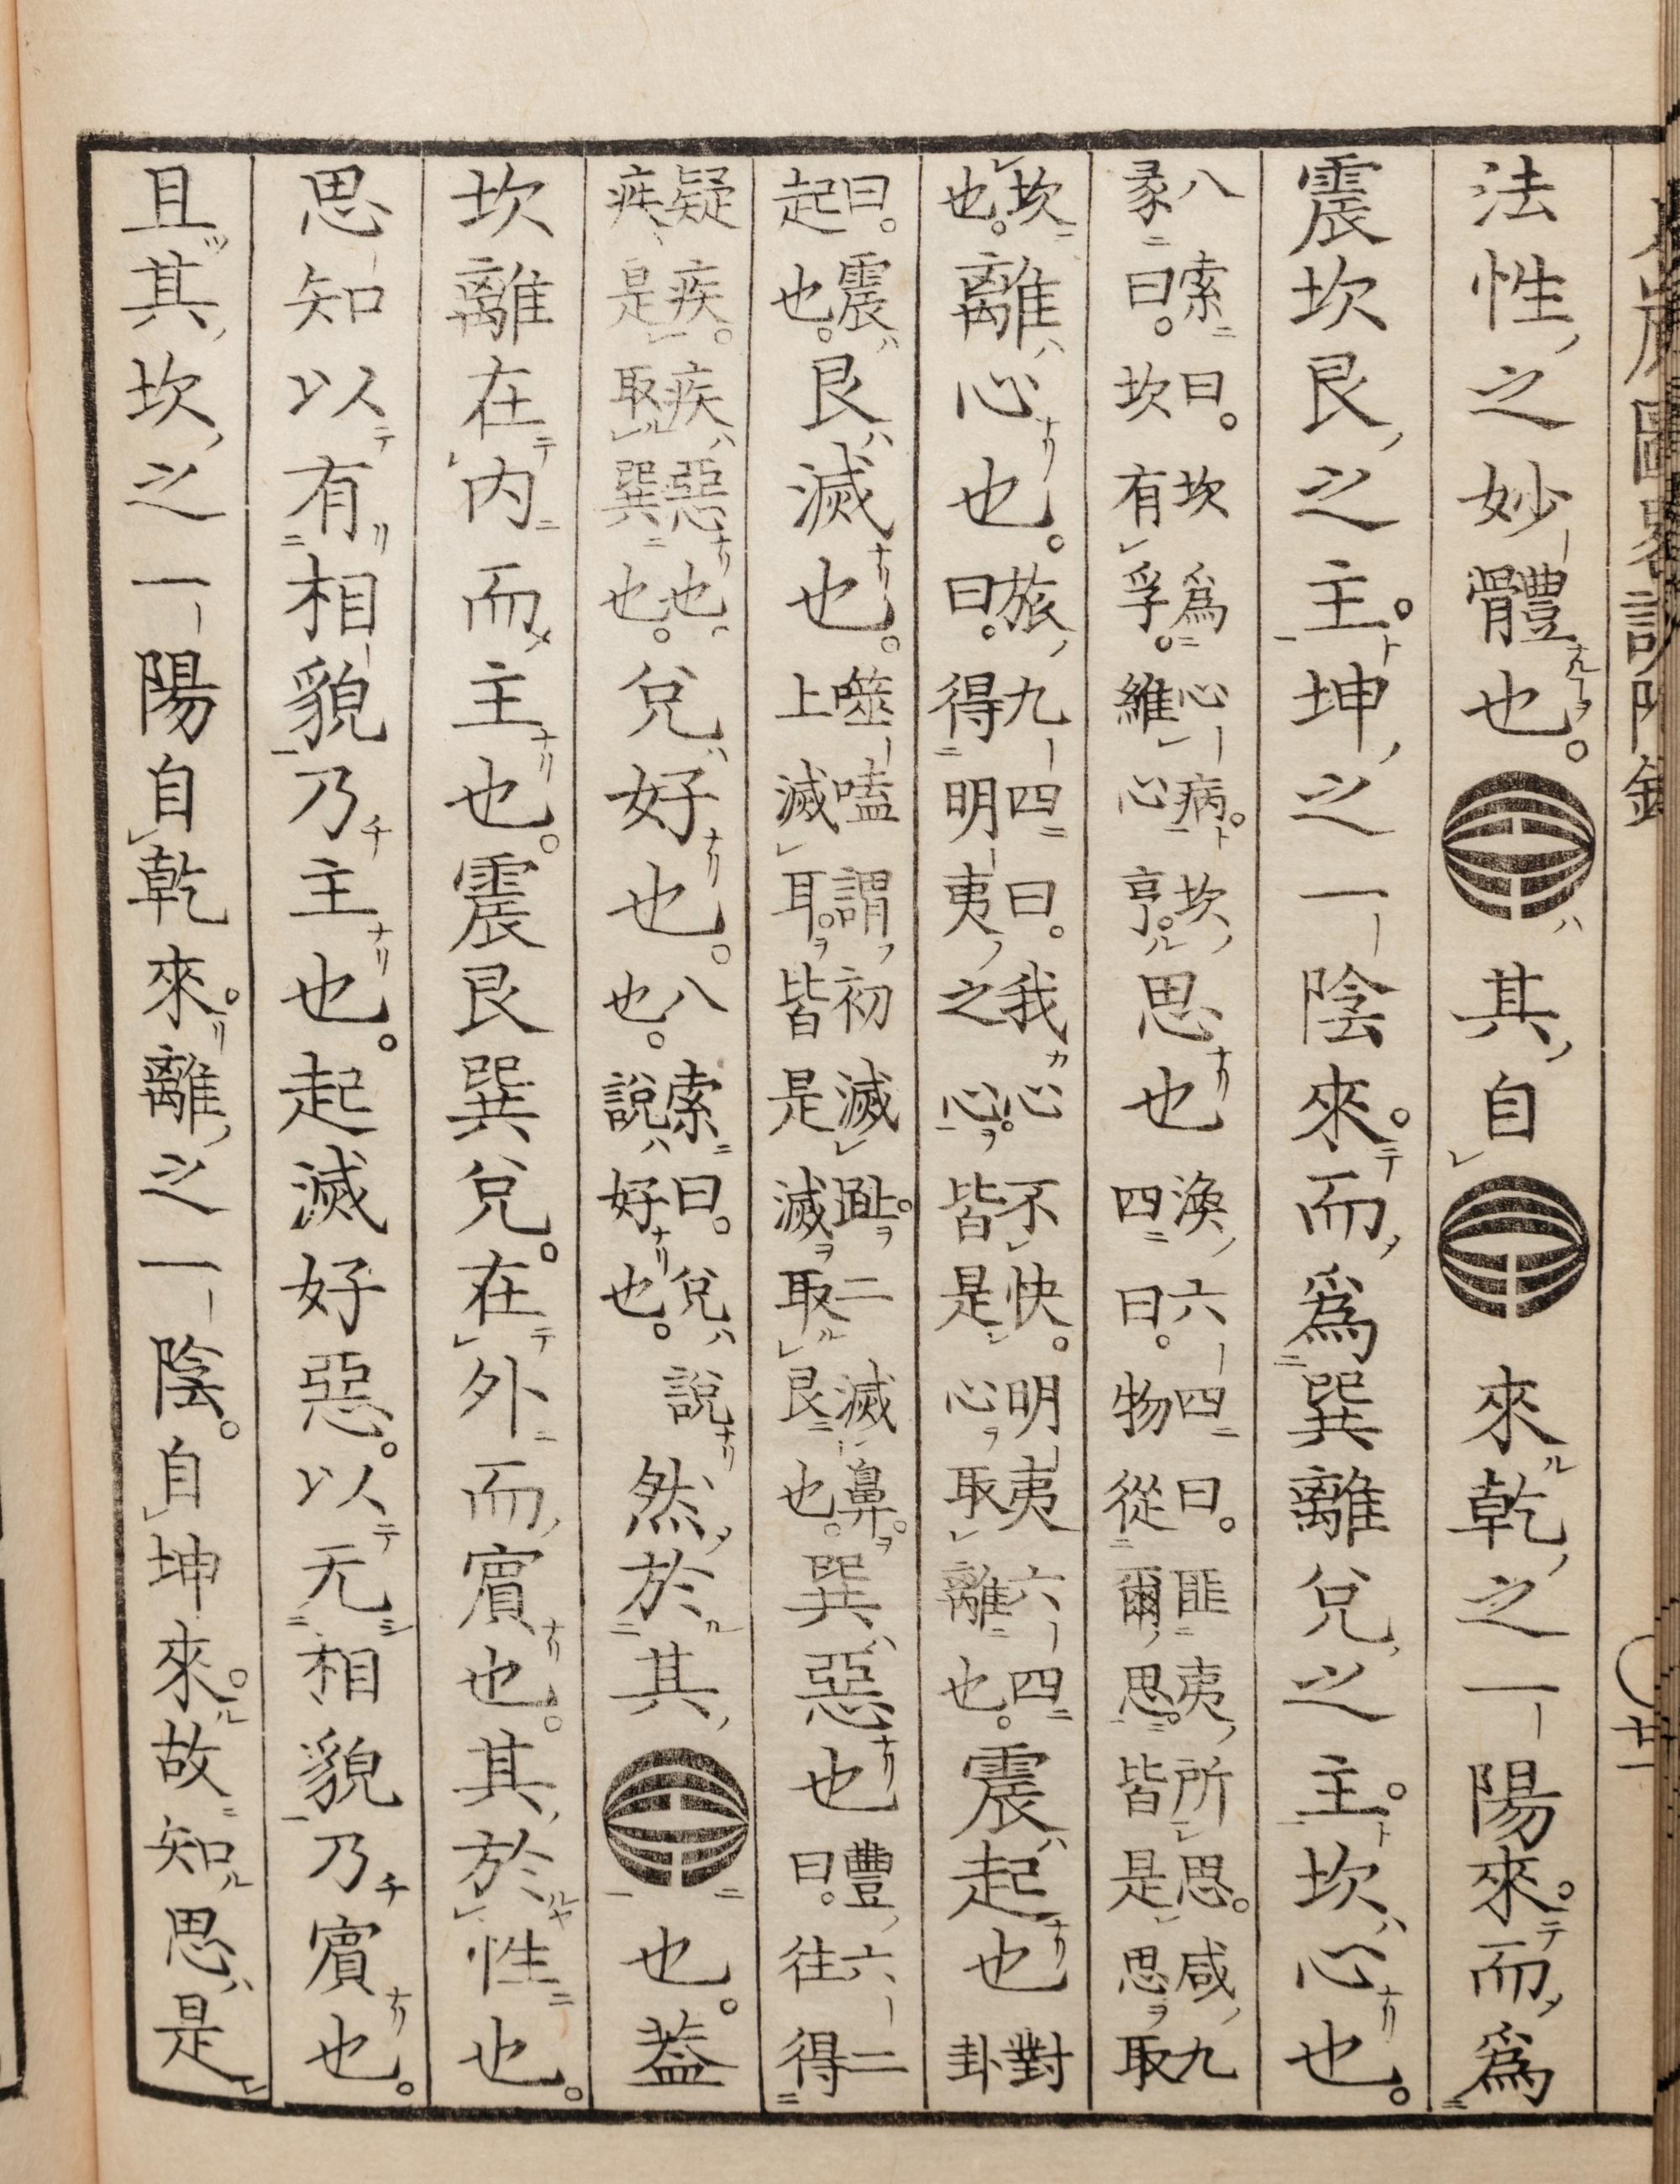 圖畧
法性之妙體也。其自來乾之一陽來。而爲
震坎艮之主。坤之一陰來。而爲巽離兌之主。坎心也。
八索曰。坎爲心病。坎
彖曰。坎有孚。維心亨。
思也
渙六四曰。匪夷所思。咸九
四曰。物從爾思。皆是思取
坎
也。
離心也。
旅九四曰。我心不快。明夷六四
曰。得明夷之心。皆是心取離也。
震起也
對
卦
曰。震
起也。
艮滅也。
噬嗑謂初滅趾。二滅鼻。
上滅耳。皆是滅取艮也。
巽惡也
豐六二
曰。往得
疑疾。疾惡也
疾是取巽也。
兌好也。
八索曰。兌說
也。說好也。
然於其也。蓋
坎離在内而主也。震艮巽兌。在外而賓也。其於性也。
思知以有相貌乃主也。起滅好惡。以无相貌乃賓也。
且其坎之一陽自乾來。離之一陰。自坤來。故知思是